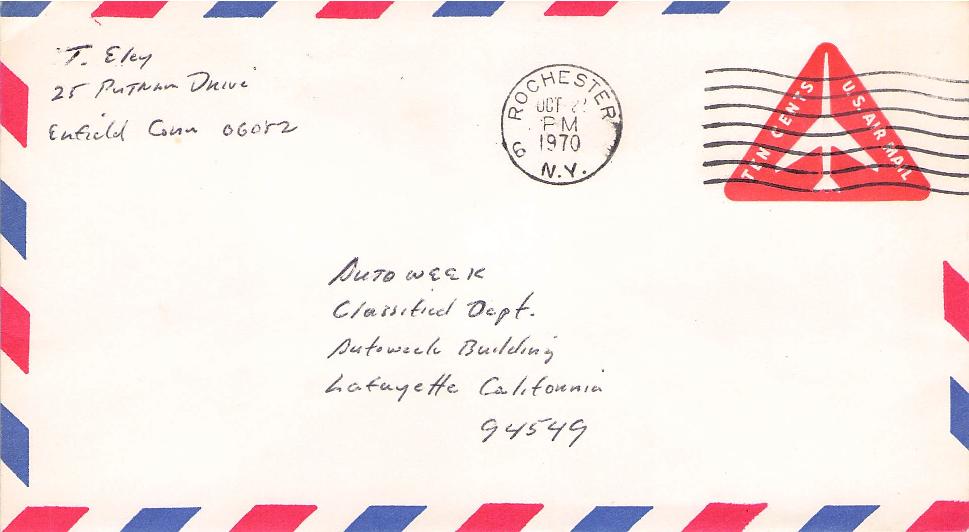 T. Eley
25 Putnam Drive
Enfield Conn 06082
ROCHESTER
OCT
PM
1970
N.Y.
9
TEN CENTS
U.S. AIR MAIL
AUTOWEEK
Classified Dept.
Autoweek Building
Lafayette California
94549